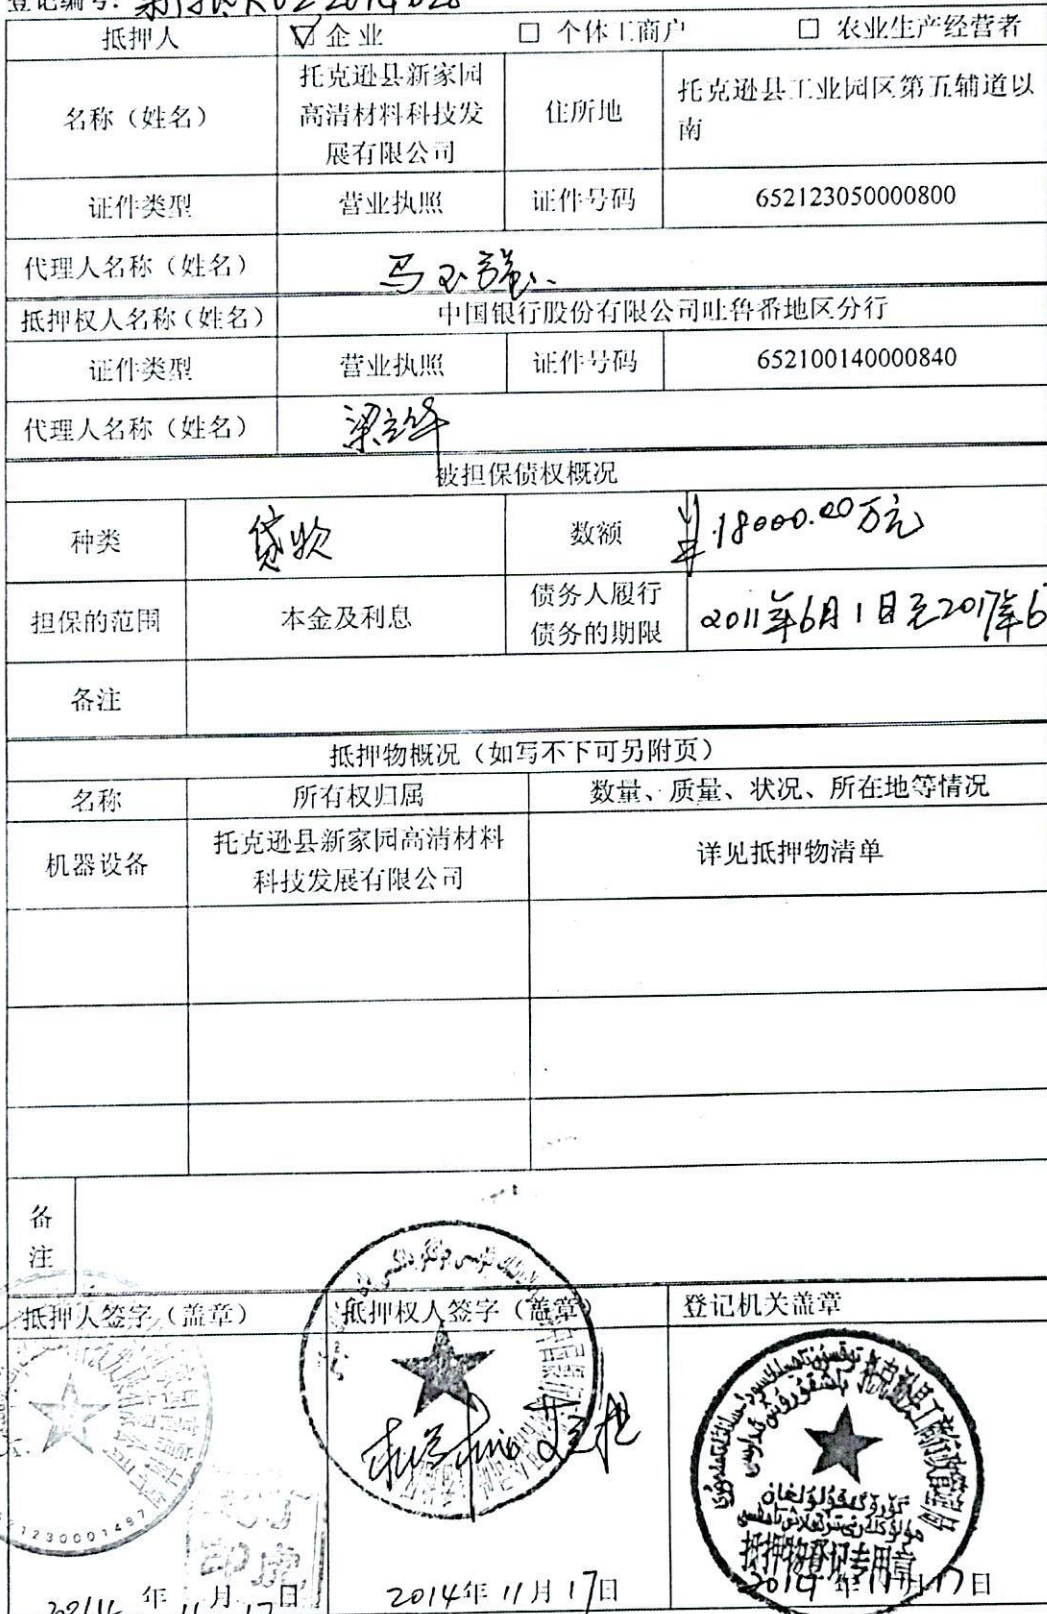 登记编号:
抵押人 ☑ 企业 □ 个体工商户 □ 农业生产经营者
名称（姓名） 托克逊县新家园高清材料科技发展有限公司 住所地 托克逊县工业园区第五辅道以南
证件类型 营业执照 证件号码 652123050000800
代理人名称（姓名） 马玉强
抵押权人名称（姓名） 中国银行股份有限公司吐鲁番地区分行
证件类型 营业执照 证件号码 652100140000840
代理人名称（姓名）
被担保债权概况
种类 贷款 数额 ¥18000.00万元
担保的范围 本金及利息 债务人履行债务的期限 2011年6月1日至2017年6
备注
抵押物概况（如写不下可另附页）
名称 所有权归属 数量、质量、状况、所在地等情况
机器设备 托克逊县新家园高清材料科技发展有限公司 详见抵押物清单
备注
抵押人签字（盖章） 抵押权人签字（盖章） 登记机关盖章
托克逊县工商行政管理局
抵押物登记专用章
2014年11月17日 2014年11月17日 2014年11月17日